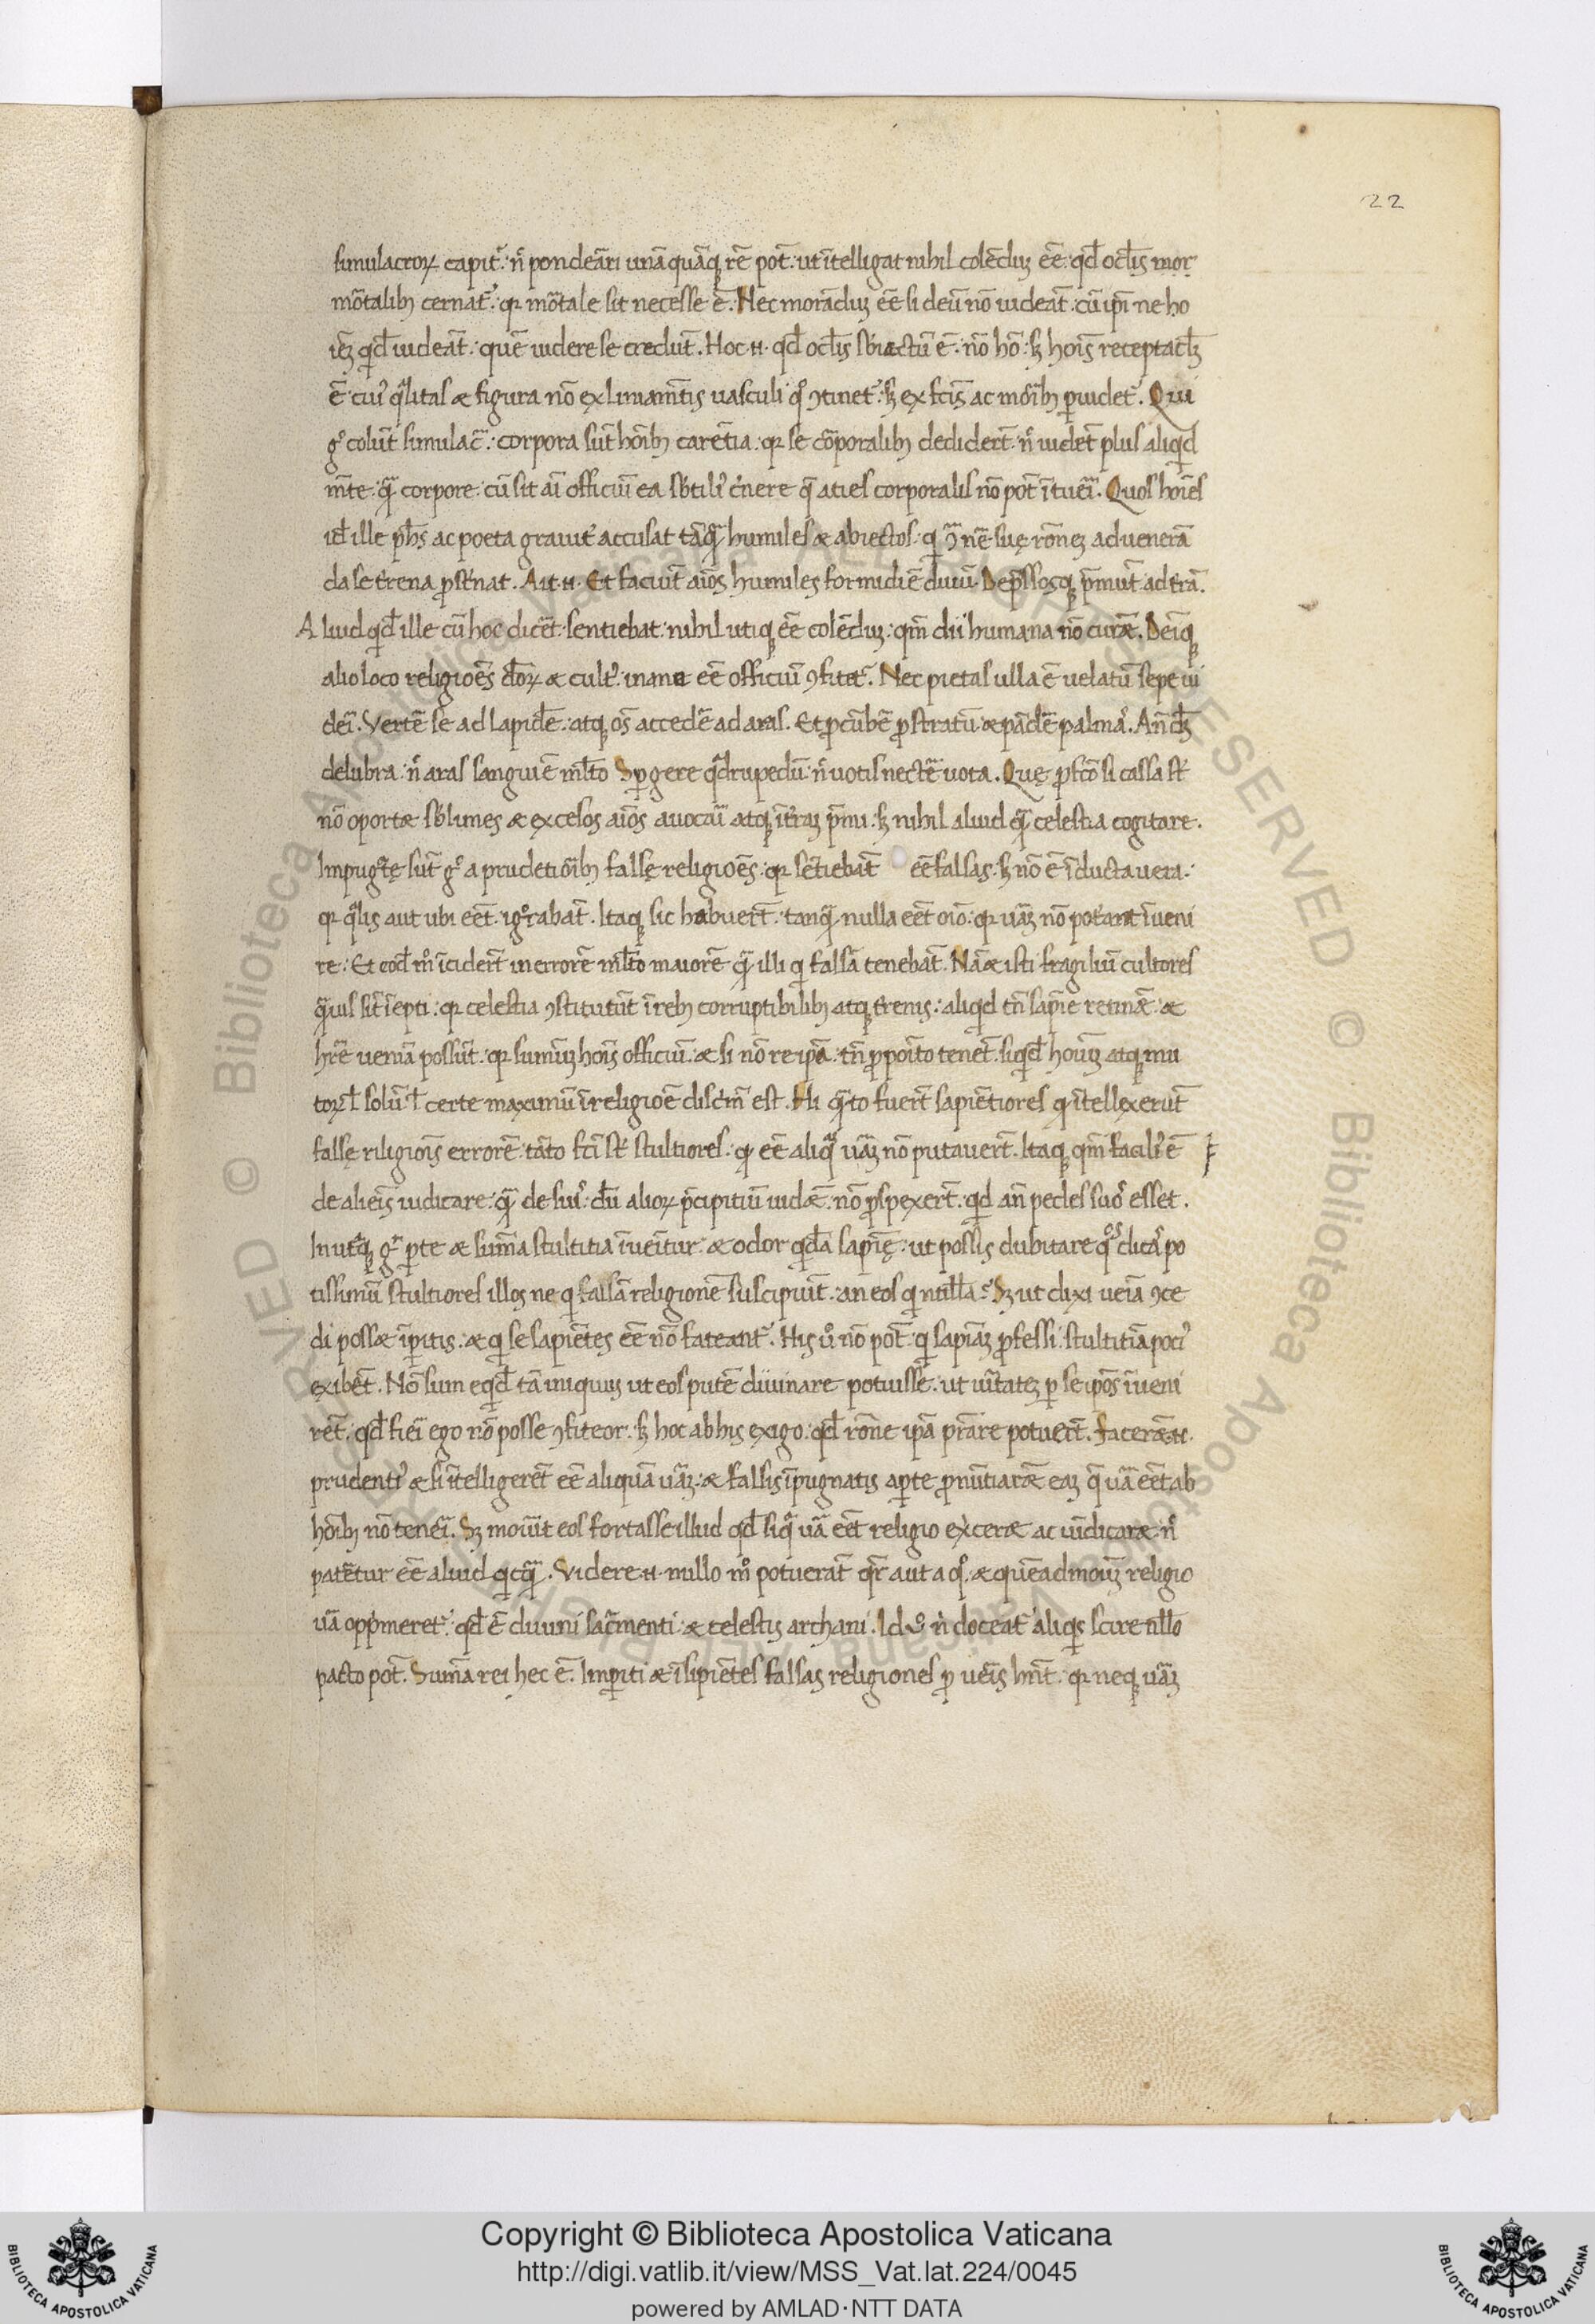 22
simulacroꝝ capit᷑. n̄ pondeari unāquāq; rē pot̄. ut ītelligat nihil colēdum eē. qd̄ ocl̄is mor
mōtalib; cernat᷑. qr mōtale sit necesse ē. Nec morādum eē si deū nō uideāt. cū ip̄i ne ho
īem qd̄ uideāt. quē uidere se credūt. Hoc .n. qd̄ ocl̄is sb̄iectū ē. nō hō. sꝫ hoīs receptacl̄m
ē. cui᷒ qlitas & figura nō ex liniam̄tis uasculi qͦ ꝯtinet᷑. sꝫ ex fc̄is ac morib; ꝑuidet᷑. Qui
gͦ colūt simulacͣ. corpora sūt hoīb; carētia. qr se corporalib; dedider̄t. n̄ uidēt plus aliqd
m̄te. qͣ corpore. cū sit ai officiū ea sb̄tili᷒ c̄nere q̄ acies corporalis nō pot̄ ītueri. Quos hoīes
id̄ ille ph̄s ac poeta grauit̄ accusat tāqͣ humiles & abiectos. q ꝯͣ nē suę rōnem ad uenerā
da se t̄rena ꝓst̄nat. Ait .n. Et faciūt aīos humiles formidiē diuū. Dep̄ssosq; p̄mūt ad t̄rā.
Aliud qd̄ ille cū hoc dic̄et sentiebat. nihil utiq; eē colēdum. qm̄ dii humana nō curāt. Deīq;
alio loco religioēs dōꝝ & cult᷒. inane eē officiū ꝯfitet᷑. Nec pietas ulla ē uelatū sepe ui
deri. Vertē se ad lapidē. atq; oēs accedē ad aras. Et ꝓcūbē ꝓstratū. & pādē palma᷒. An̄ dm̄
delubra. n̄ aras sanguiē ml̄to Spgere qͣdrupedū. n̄ uotis nectē uota. Quę ꝓfcō si cassa st̄
nō oportet sb̄limes & excelsos aīos auocari atq; ī t̄ram p̄mi. sꝫ nihil aliud qͣ celestia cogitare.
Impugͣtę sūt gͦ a prudētiorib; falsę religioēs. qr sētiebāt eē falsas. sꝫ nō ē īducta uera.
qr qlis aut ubi eēt. igͦrabāt. Itaq; sic habuer̄t. tanqͣ nulla eēt oīo. qr uāꝫ nō poterant īueni
re. Et eod̄ mͦ īcider̄t in errorē ml̄to maiorē qͣ illi q falsā tenebāt. Nā & isti fragiliū cultores
qͣuis sīt īepti. qr celestia ꝯstituūt ī reb; corruptibilib; atq; t̄renis. aliqd tn̄ sapīe retinēt. &
hr̄e ueniā possūt. qr summū hoīs officiū. & si nō re ipā. tn̄ ꝓpoito tenēt. siqd̄ hoīum atq; mu
toꝝ l̄ solū l̄ certe maximū ī religioē discͥm̄ est. Hi qͣto fuer̄t sapiētiores q ītellexerūt
falsę riligioīs errorē. tāto fc̄i st̄ stultiores. q eē aliqͣ uāꝫ nō putauer̄t. Itaq; qm̄ facili᷒ ē
de alieīs iudicare. qͣ de sui᷒. dū alioꝝ p̄cipitiū uidēt. nō ꝓspexer̄t. qd an̄ pedes suo᷒ esset.
In utͣq; gͦ pte & summa stultitia īueītur. & odor qd̄ā sapīę. ut possis dubitare qͦs dica᷒ po
tissimū stultiores illos ne q falsā religionē suscipiūt. an eos q nullā. Sꝫ ut dixi ueīa ꝯce
di posset īpitis. & q se sapiētes eē nō fateant᷑. His uͦ nō pot̄. q sapīaꝫ ꝓfessi. stultitiā poci᷒
exibēt. Nō sum eqd̄ tā iniquus ut eos putē diuinare potuisse. ut uīt̄atem p se ip̄os īueni
rēt. qd̄ fieri ego nō posse ꝯfiteor. sꝫ hoc ab his exigo. qd̄ rōne ipā pr̄are potuer̄t. Facerēt .n.
prudenti᷒ & si ītelligerēt eē aliquā uāꝫ. & falsis īpugnatis apte ꝓnūtiarēt eaꝫ q̄ uā eēt ab
hoīb; nō teneri. Sꝫ moūit eos fortasse illud qd̄ siqͣ uā eēt religio exceret ac uīdicaret n̄
paterētur eē aliud qcqͣ. Videre .n. nullo mͦ potuerāt qr̄ aut a qͦ. & quēadmoūm religio
uā oppͥmeret᷑. qd̄ ē diuini sac̄menti. & celestis archani. Id uͦ n̄ doceat᷑ aliqis scire nll̄o
pacto pot̄. Summa rei hec ē. Impiti & īsipiētes falsas religiones ꝓ ueīs hn̄t. qr neq; uāꝫ
Copyright © Biblioteca Apostolica Vaticana
http://digi.vatlib.it/view/MSS_Vat.lat.224/0045
powered by AMLAD·NTT DATA